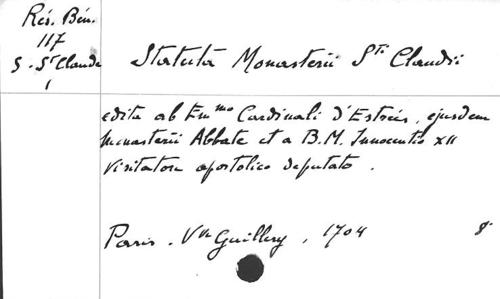 Rés. Bén.
117
S. St Claude
1
Statuta Monasterii Sti Claudii
edita ab Emmo Cardinali d'Estrées, ejusdem
monasterii Abbate et a B.M. Innocentio XII
Visitatore apostolico deputato.
Paris. Vve Guillery, 1704 8°